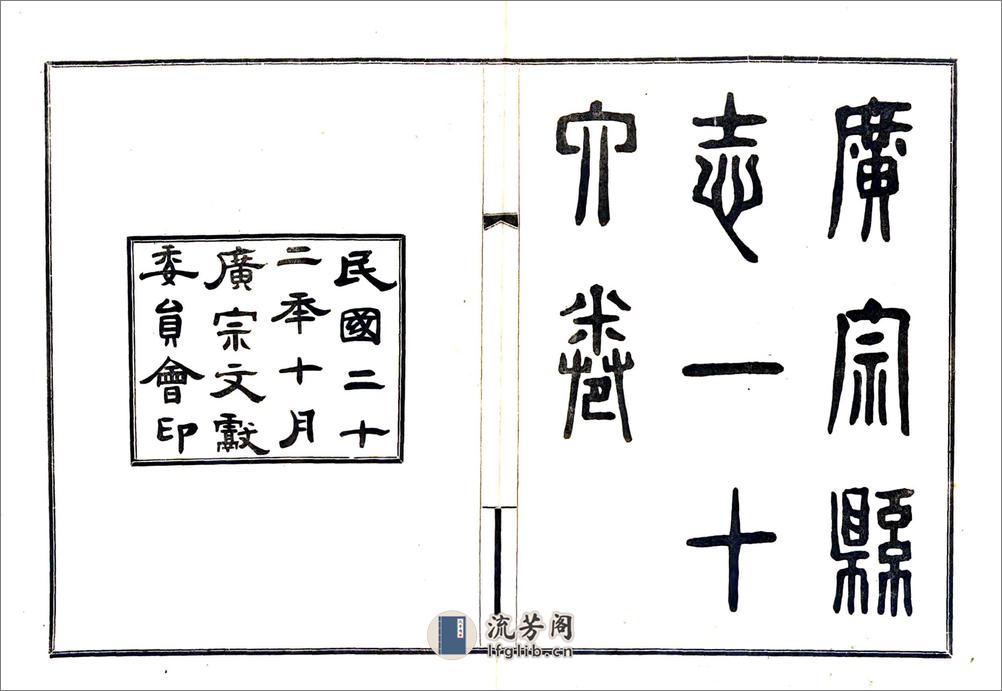 廣宗縣
志一十
六卷
民國二十
二年十月
廣宗文獻
委員會印
流芳阁
lfglib.cn